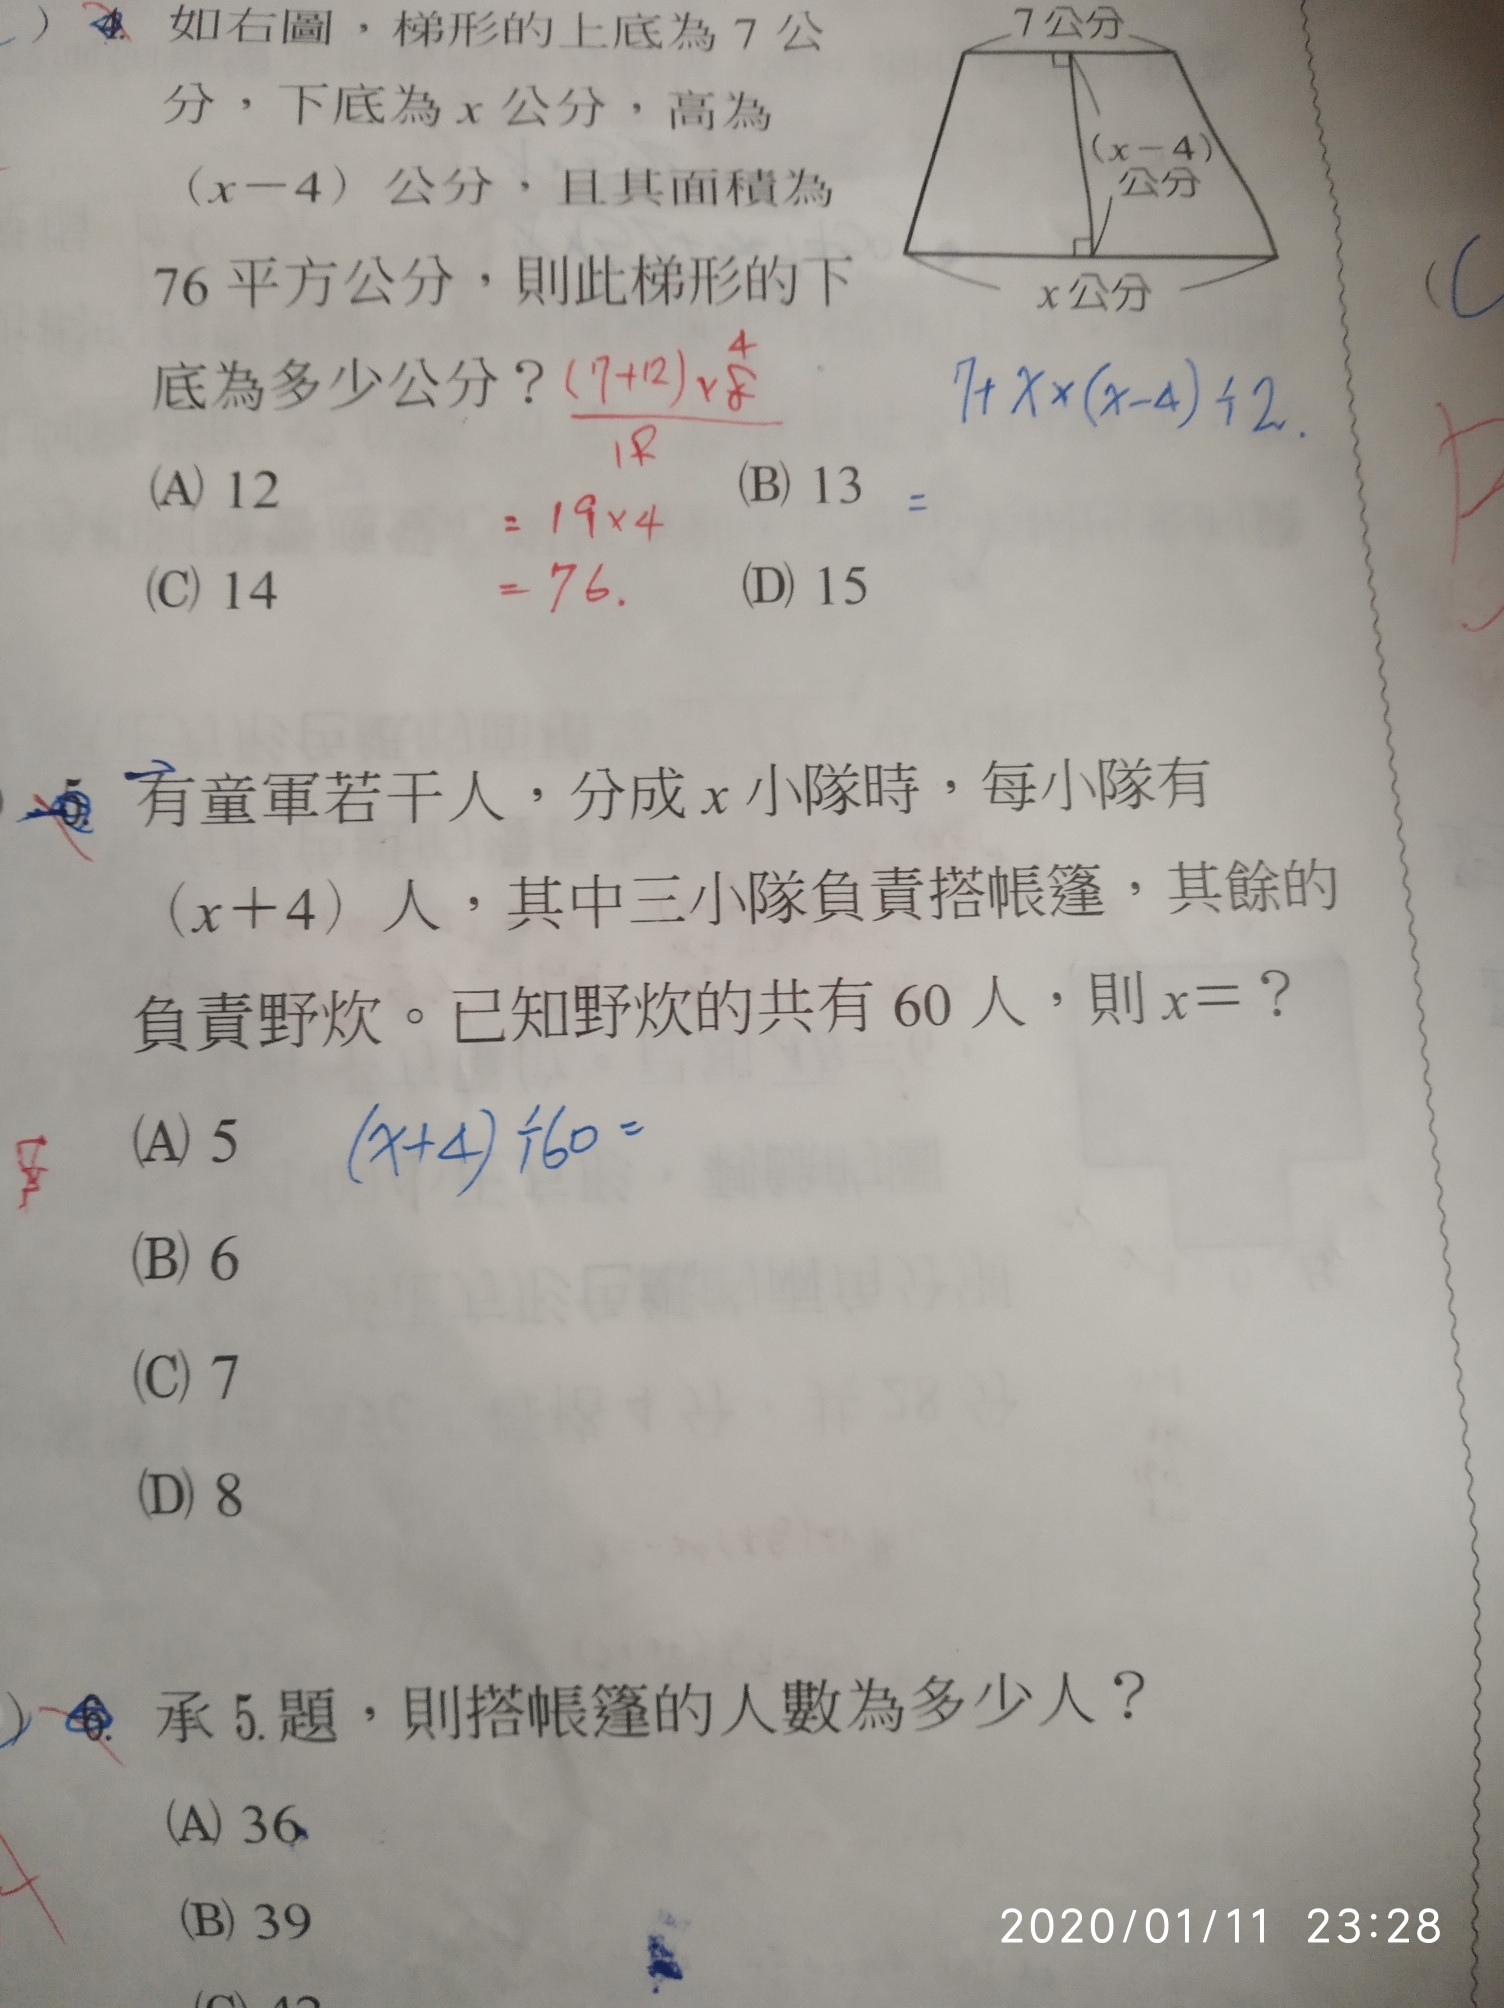 4. 如右圖，梯形的上底為 7 公
分，下底為 x 公分，高為
（x－4）公分，且其面積為
76 平方公分，則此梯形的下
底為多少公分？
7 公分
（x－4）
公分
x 公分
(7+12)×8 4
12
= 19×4
= 76.
7+x×(x-4)÷2.
=
(A) 12
(B) 13
(C) 14
(D) 15
5. 有童軍若干人，分成 x 小隊時，每小隊有
（x＋4）人，其中三小隊負責搭帳篷，其餘的
負責野炊。已知野炊的共有 60 人，則 x＝？
(A) 5
(x+4)÷60=
(B) 6
(C) 7
(D) 8
6. 承 5. 題，則搭帳篷的人數為多少人？
(A) 36
(B) 39
(C) 42
2020/01/11 23:28